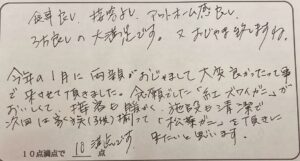 食事良し、接客よし、アットホーム感良し
3方良しの大満足です。又おじゃま致します。
今年の1月に両親がおじゃまして大変良かったって事
で来させて頂きました。念願でした「紅ズワイガニ」が
おいしくて、接客も暖かく、施設も清潔で
次回は家族(3役)揃って「松葉ガニ」を頂きに
来たいと思います。
10点満点で 18 点
満点です